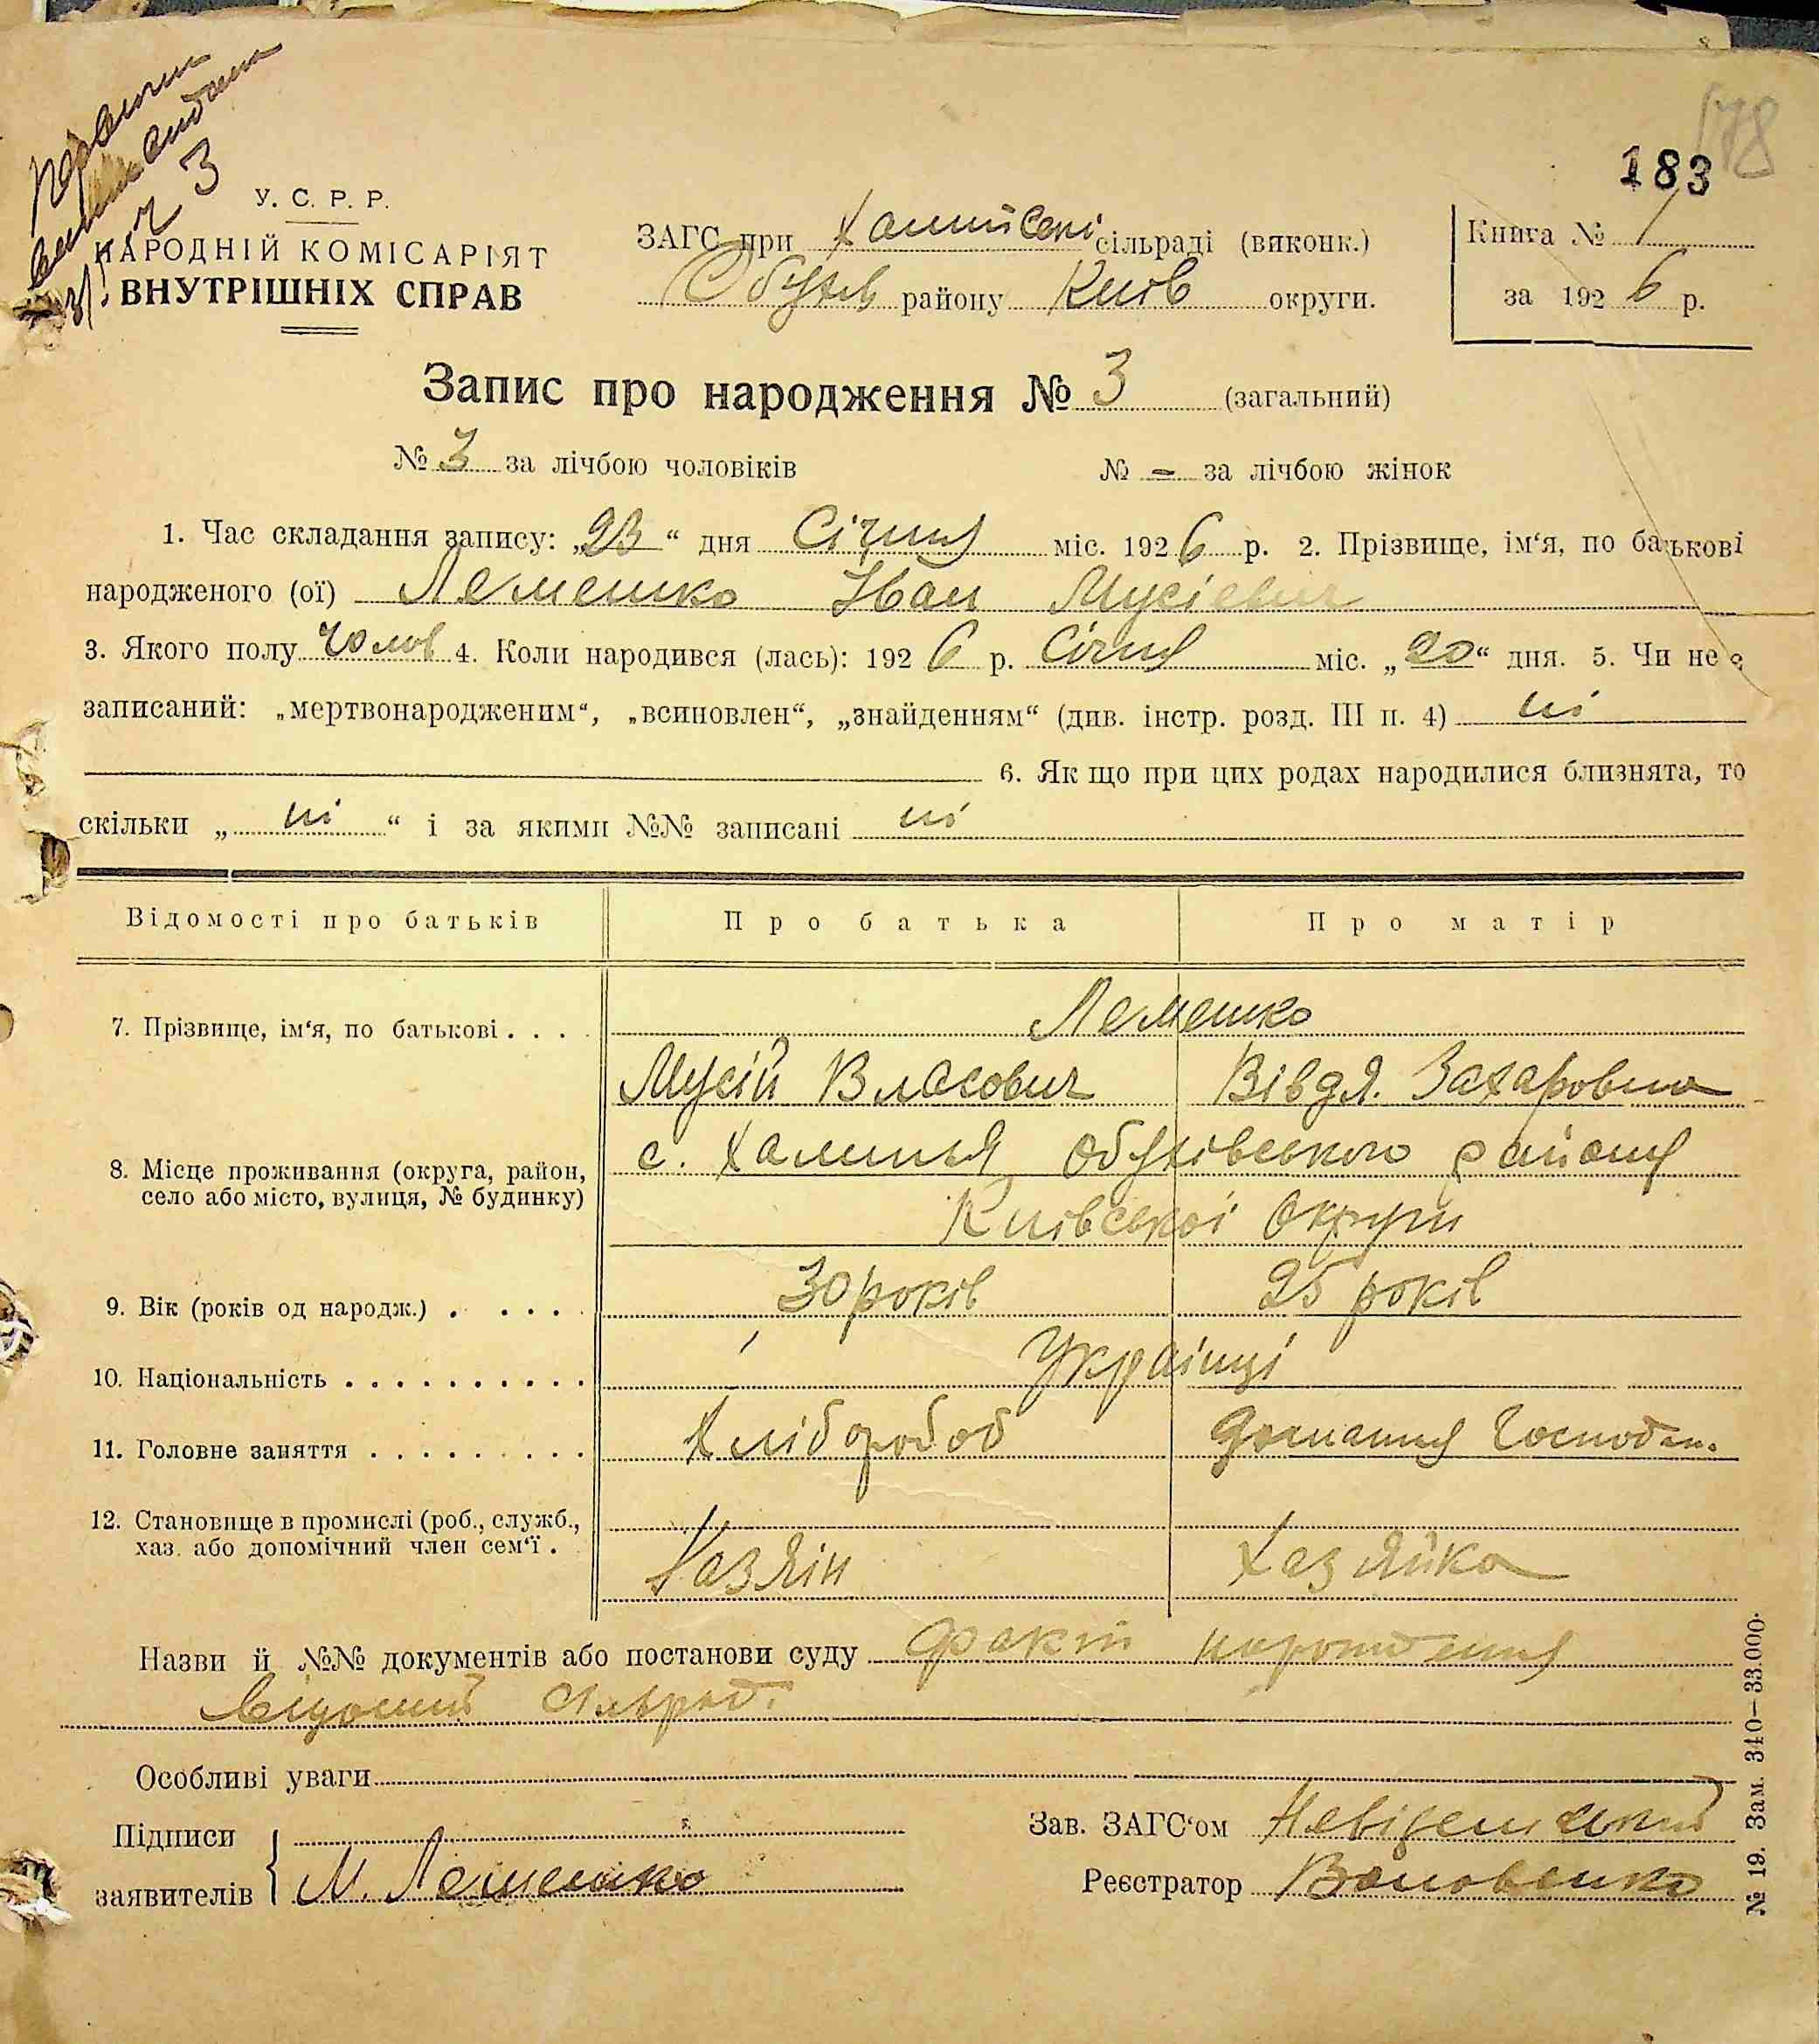 178
183
№ 3
У. С. Р. Р.
НАРОДНІЙ КОМІСАРІЯТ
ВНУТРІШНІХ СПРАВ
ЗАГС при сільраді (виконк.)
Обухів району Київ округи.
Книга № 1
за 1926 р.
Запис про народження № 3 (загальний)
№ 3 за лічбою чоловіків № = за лічбою жінок
1. Час складання запису: „23“ дня Січня міс. 1926 р. 2. Прізвище, ім‘я, по батькові
народженого (ої) Лемешко Іван Мусієвич
3. Якого полу чолов 4. Коли народився (лась): 1926 р. Січня міс. „20“ дня. 5. Чи не є
записаний: „мертвонародженим“, „всиновлен“, „знайденням“ (див. інстр. розд. III п. 4) ні
6. Як що при цих родах народилися близнята, то
скільки „ ні “ і за якими №№ записані ні
Відомості про батьків Про батька Про матір
7. Прізвище, ім‘я, по батькові . . . . Лемешко
Мусій Власович Вівдя. Захаровна
8. Місце проживання (округа, район, с. Халипья Обухівського району
село або місто, вулиця, № будинку) Київської Округи
9. Вік (років од народж.) . . . . . 30 років 25 років
10. Національність . . . . . . . . . . Українці
11. Головне заняття . . . . . . . . . Хлібороб Домашня Господ
12. Становище в промислі (роб., служб.,
хаз. або допомічний член сем‘ї . Хазяін Хазяйка
Назви й №№ документів або постанови суду Факт народження
відомий сільрад.
Особливі уваги
Підписи
заявителів М. Лемешко
Зав. ЗАГС‘ом
Реєстратор
№ 19. Зам. 340—33.000.